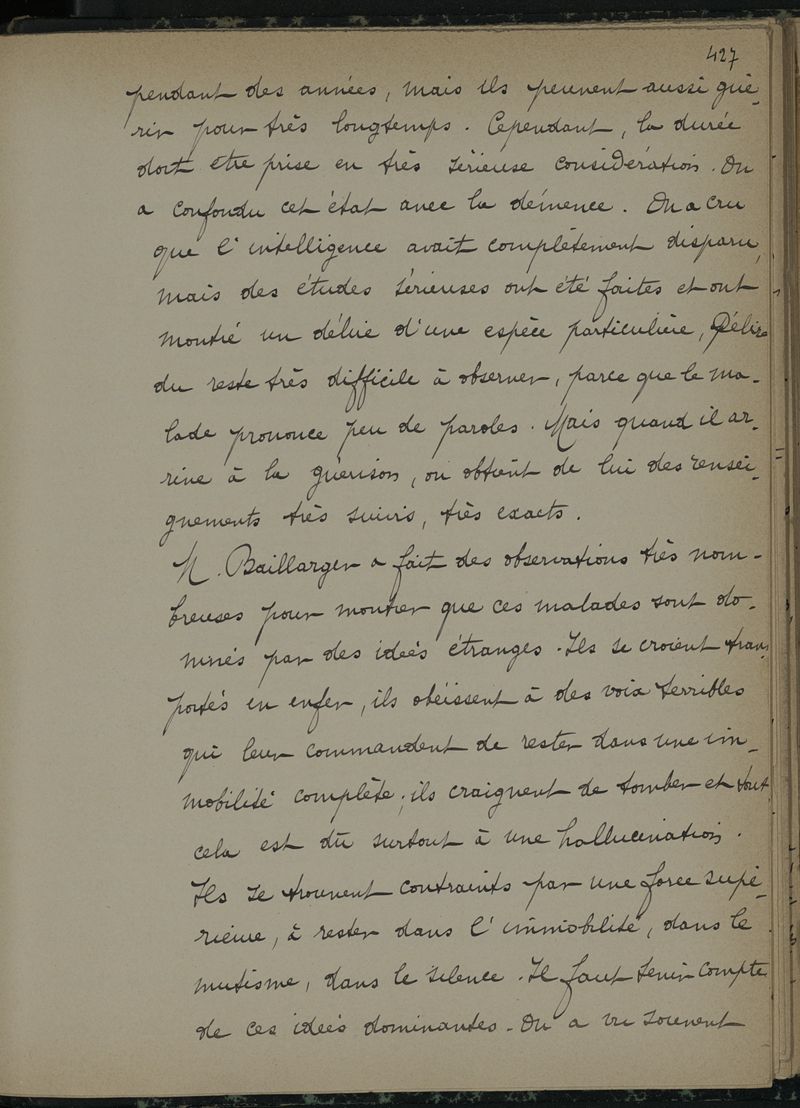 427
pendant des années, mais ils peuvent aussi gué-
rir pour très longtemps. Cependant, la durée
doit être prise en très sérieuse considération. On
a confondu cet état avec la démence. On a cru
que l'intelligence avait complètement disparu,
mais des études sérieuses ont été faites et ont
montré un délire d'une espèce particulière, Délire
du reste très difficile à observer, parce que le ma-
lade prononce peu de paroles. Mais quand il ar-
rive à la guérison, on obtient de lui des rensei-
gnements très suivis, très exacts.
M. Baillarger a fait des observations très nom-
breuses pour montrer que ces malades sont do-
minés par des idées étranges. Ils se croient trans
portés en enfer, ils obéissent à des voix terribles
qui leur commandent de rester dans une im-
mobilité complète; ils craignent de tomber et tout
cela est dû surtout à une hallucination.
Ils se trouvent contraints par une force supé-
rieure, à rester dans l'immobilité, dans le
mutisme, dans le silence. Il faut tenir compte
de ces idées dominantes. On a vu souvent